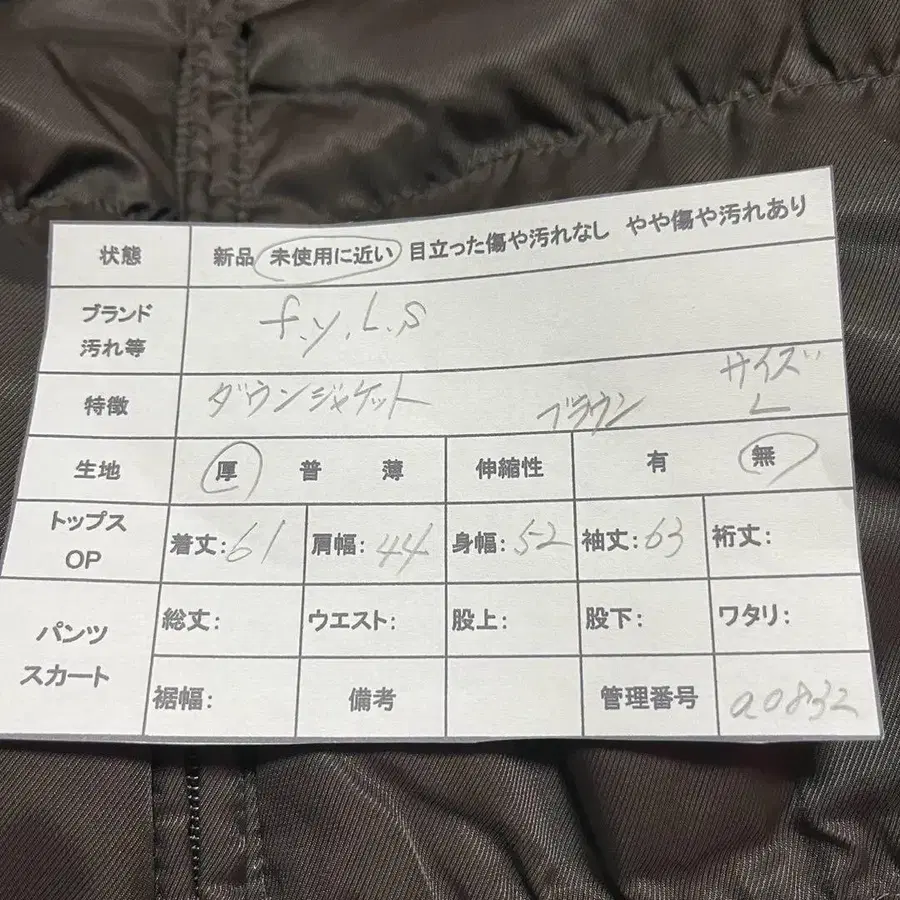 状態 新品 未使用に近い 目立った傷や汚れなし やや傷や汚れあり
ブランド
汚れ等
f.y.L.s
特徴 ダウンジャケット ブラウン サイズ L
生地 厚 普 薄 伸縮性 有 無
トップス
OP
着丈:61 肩幅:44 身幅:52 袖丈:63 裄丈:
パンツ
スカート
総丈: ウエスト: 股上: 股下: ワタリ:
裾幅: 備考 管理番号 a0832